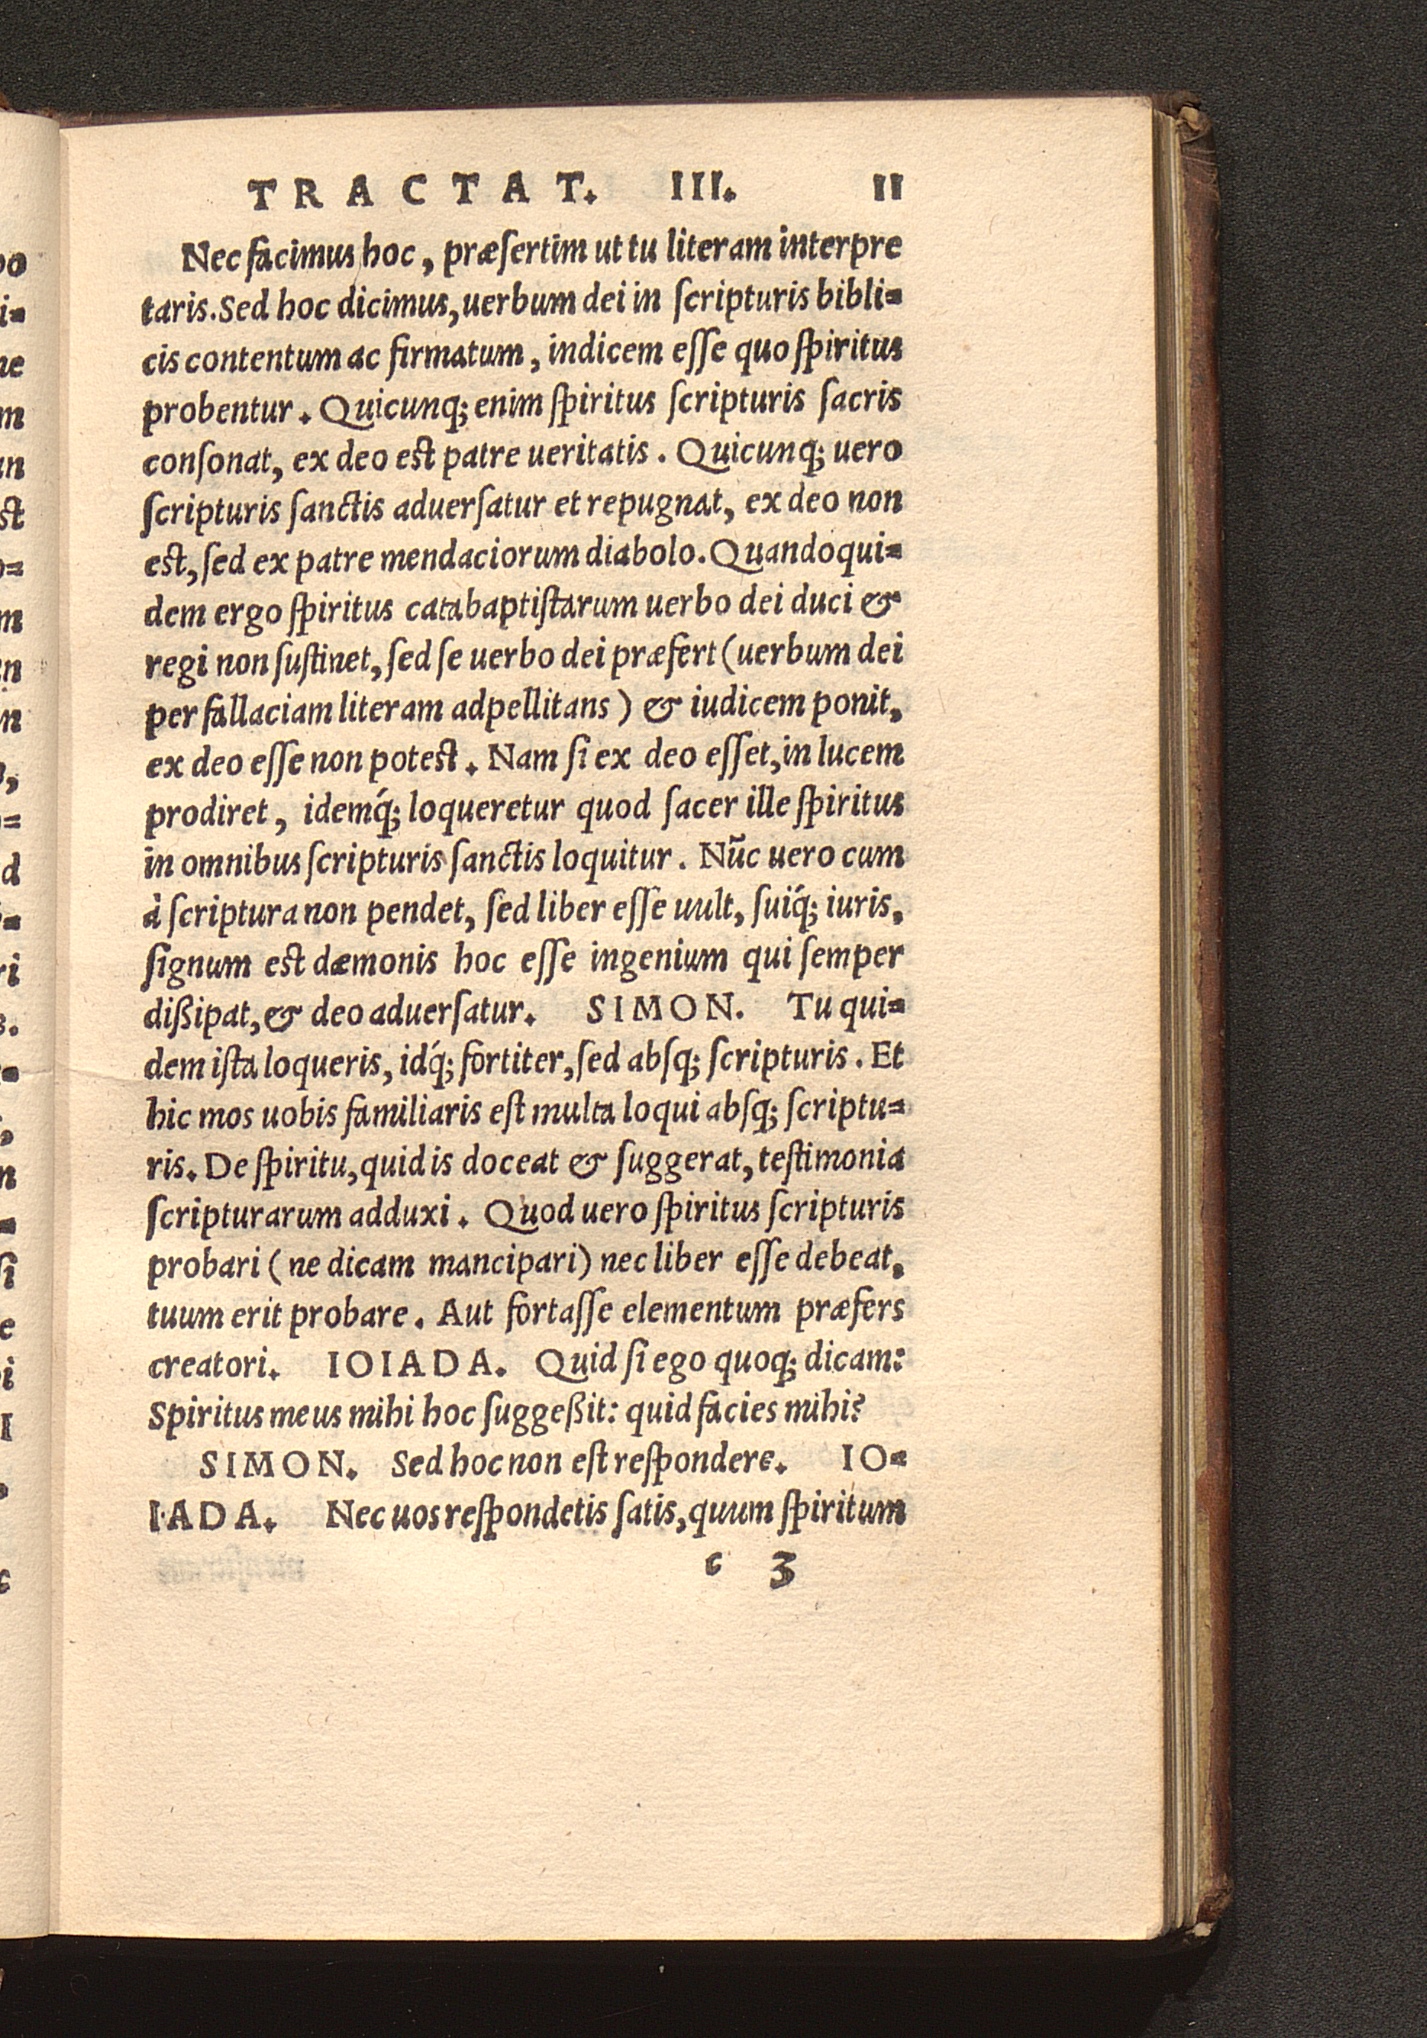 TRACTAT. III. II
Nec facimus hoc, præſertim ut tu literam interpre
taris. Sed hoc dicimus, uerbum dei in ſcripturis bibli=
cis contentum ac firmatum, indicem eſſe quo ſpiritus
probentur. Quicunq; enim ſpiritus ſcripturis ſacris
conſonat, ex deo est patre ueritatis. Quicunq; uero
ſcripturis ſanctis aduerſatur et repugnat, ex deo non
est, ſed ex patre mendaciorum diabolo. Quandoqui=
dem ergo ſpiritus catabaptiſtarum uerbo dei duci &
regi non ſuſtinet, ſed ſe uerbo dei præfert (uerbum dei
per fallaciam literam adpellitans) & iudicem ponit,
ex deo eſſe non potest. Nam ſi ex deo eſſet, in lucem
prodiret, idemq́; loqueretur quod ſacer ille ſpiritus
in omnibus ſcripturis ſanctis loquitur. Nũc uero cum
à ſcriptura non pendet, ſed liber eſſe uult, ſuiq́; iuris,
ſignum est dæmonis hoc eſſe ingenium qui ſemper
dißipat, & deo aduerſatur. SIMON. Tu qui=
dem iſta loqueris, idq́; fortiter, ſed abſq; ſcripturis. Et
hic mos uobis familiaris eſt multa loqui abſq; ſcriptu=
ris. De ſpiritu, quid is doceat & ſuggerat, teſtimonia
ſcripturarum adduxi. Quod uero ſpiritus ſcripturis
probari (ne dicam mancipari) nec liber eſſe debeat,
tuum erit probare. Aut fortaſſe elementum præfers
creatori. IOIADA. Quid ſi ego quoq; dicam:
Spiritus meus mihi hoc ſuggeßit: quid facies mihi?
SIMON. Sed hoc non eſt reſpondere. IO=
IADA. Nec uos reſpondetis ſatis, quum ſpiritum
c 3